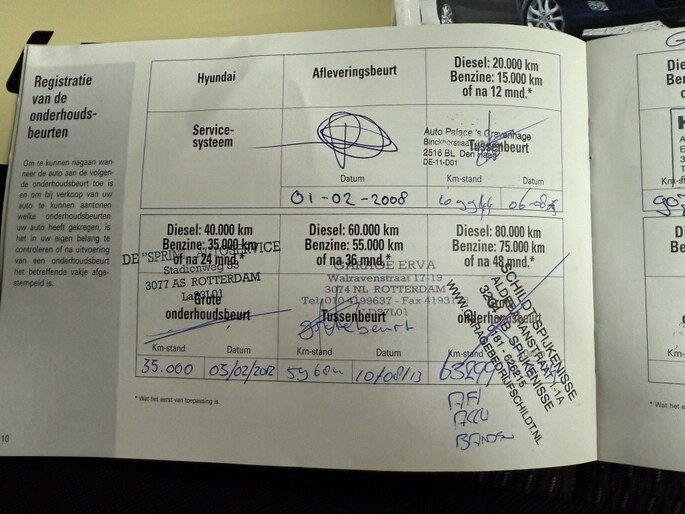 Registratie
van de
onderhouds-
beurten
Om te kunnen nagaan wan-
neer de auto aan de volgen-
de onderhoudsbeurt toe is
en om bij verkoop van uw
auto te kunnen aantonen
welke onderhoudsbeurten
uw auto heeft gekregen, is
het in uw eigen belang te
controleren of na uitvoering
van een onderhoudsbeurt
het betreffende vakje afge-
stempeld is.
10
Hyundai
Afleveringsbeurt
Diesel: 20.000 km
Benzine: 15.000 km
of na 12 mnd.*
Service-
systeem
Datum
01-02-2008
Auto Palace 's Gravenhage
2516 BL Den Haag
DE-11-D01
Tussenbeurt
Km-stand
Datum
Diesel: 40.000 km
Benzine: 35.000 km
of na 24 mnd.*
Stadionweg
3077 AS ROTTERDAM
Grote
onderhoudsbeurt
Km-stand
Datum
35.000
03/02/2012
Diesel: 60.000 km
Benzine: 55.000 km
of na 36 mnd.*
GARAGE ERVA
Walravenstraat 17-19
3074 NL ROTTERDAM
Tel: 010-4199637 - Fax
Tussenbeurt
Grote beurt
Km-stand
Datum
10/08/13
Diesel: 80.000 km
Benzine: 75.000 km
of na 48 mnd.*
SCHILDT SPIJKENISSE
SPIJKENISSE
WWW.GARAGEBEDRIJFSCHILDT.NL
Km-stand
AFI
ACCU
BANDEN
* Wat het eerst van toepassing is.
Km-stand